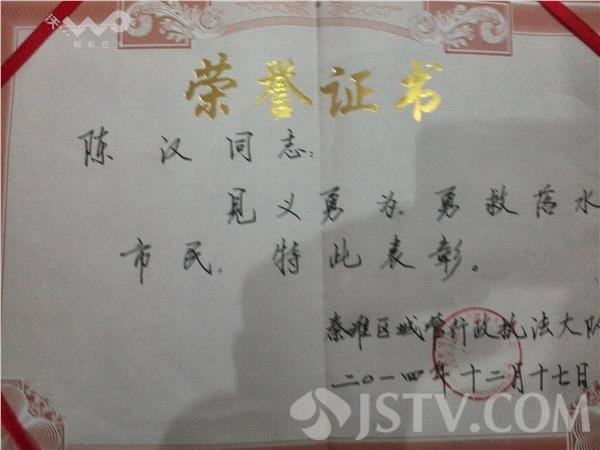 荣誉证书
陈汉同志:
见义勇为勇救落水
市民.特此表彰。
秦淮区城管行政执法大队
二〇一四年十二月十七日
JSTV.COM